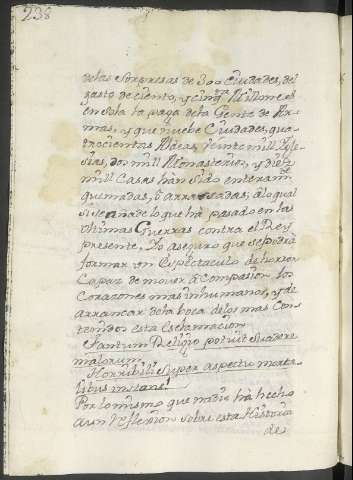 238
de las Sorpresas de 300 Ciudades, del
gasto de ciento, y cinq.ta Millones
en sola la paga de la Gente de Ar-
mas, y que nuebe Ciudades, qua-
trocientas Aldeas, veinte mill Igle-
sias, dos mill Monasterios, y diez
mill Casas hàn sido enteram.te
quemadas, ò arrasadas; à lo qual
si se añade lo que hà pasado en las
ultimas Guerras contra el Rey
presente, Yo aseguro que se podrà
formar un Espectaculo de horror
Capaz de mover à Compasion los
Corazones mas inhumanos, y de
arrancar de la boca de los mas Con-
tenidos esta Esclamacion
Tantum Religio potuit Suadere
malorum.
Horribili Super aspectu morta-
libus instans!
Por lo mismo que nadie hà hecho
aun Reflexion sobre esta Historia
de